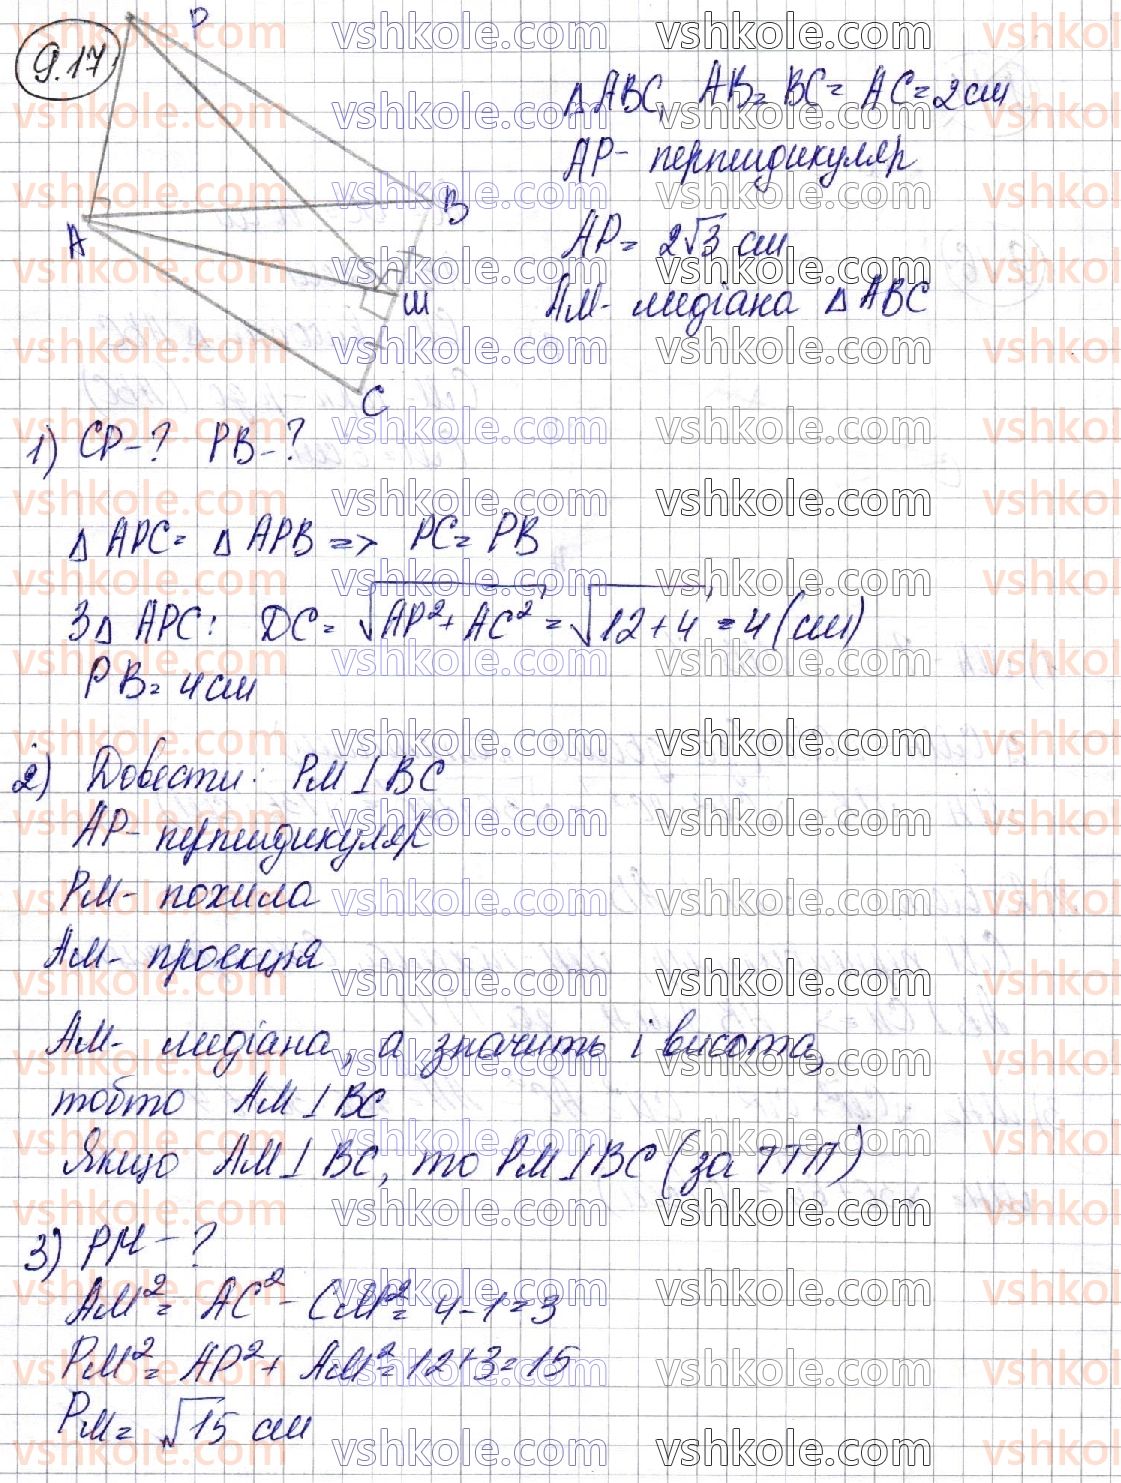 9.17
P
A
B
M
C
△ ABC, AB = BC = AC = 2 см
AP - перпендикуляр
AP = 2√3 см
AM - медіана △ ABC
1) CP - ? PB - ?
△ APC = △ APB => PC = PB
З △ APC: DC = √AP² + AC² = √12 + 4 = 4 (см)
PB = 4 см
2) Довести: PM ⊥ BC
AP - перпендикуляр
PM - похила
AM - проекція
AM - медіана, а значить і висота,
тобто AM ⊥ BC
Якщо AM ⊥ BC, то PM ⊥ BC (за ТТП)
3) PM - ?
AM² = AC² - CM² = 4 - 1 = 3
PM² = AP² + AM² = 12 + 3 = 15
PM = √15 см
vshkole.com